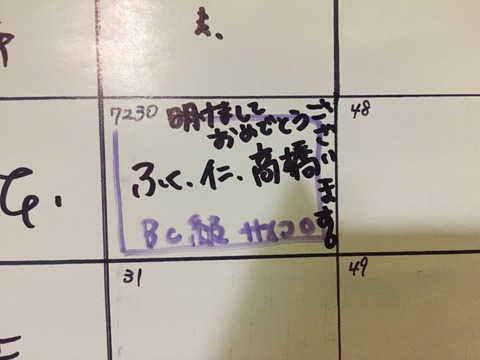 ま.
て.
7230
明けまして
おめでとう
ございます。
ふく、仁、高橋
BC級
48
31
49